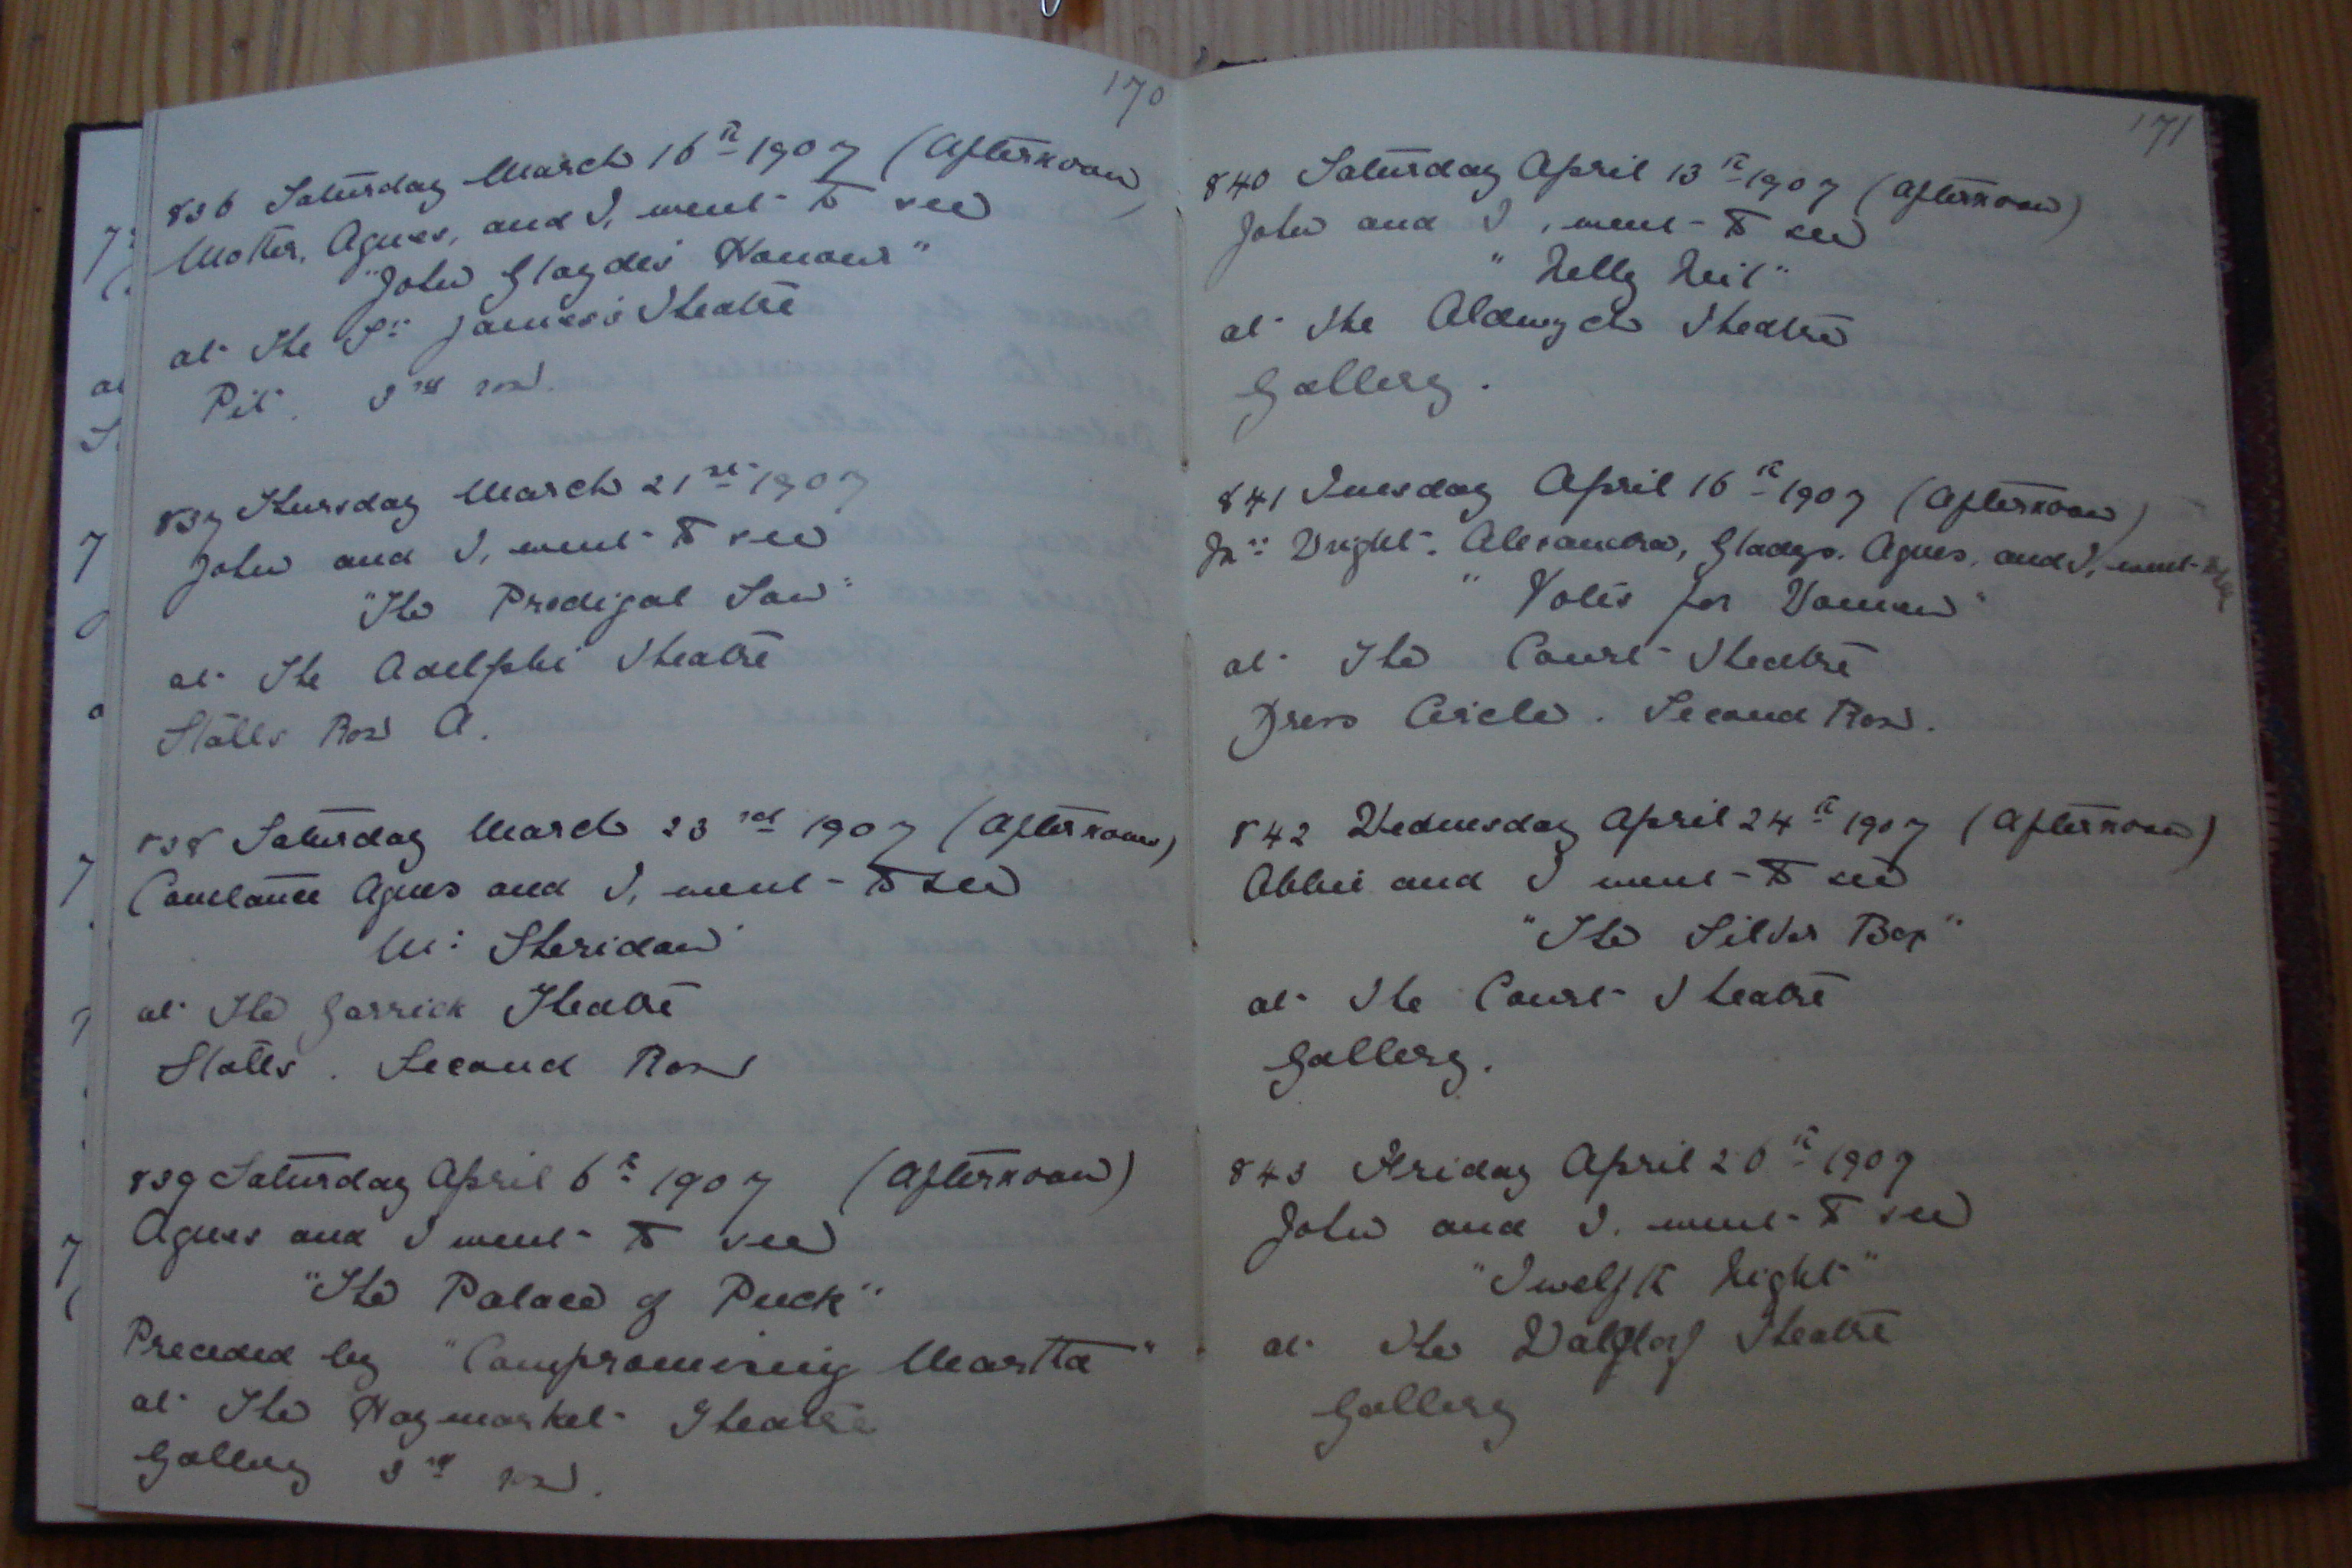 170
836 Saturday March 16th 1907 (Afternoon)
Mother, Agnes, and I, went to see
"John Glayde's Honour"
at The St James's Theatre
Pit. 3rd row.
837 Thursday March 21st 1907
John and I, went to see
"The Prodigal Son"
at The Adelphi Theatre
Stalls Row A.
838 Saturday March 23rd 1907 (Afternoon)
Constance Agnes and I, went to see
Mr Sheridan"
at The Garrick Theatre
Stalls. Second Row
839 Saturday April 6th 1907 (Afternoon)
Agnes and I went to see
"The Palace of Puck"
Preceded by "Compromising Martha"
at The Haymarket Theatre
Gallery 3rd row.
171
840 Saturday April 13th 1907 (Afternoon)
John and I, went to see
"Nelly Neil"
at The Aldwych Theatre
Gallery.
841 Tuesday April 16th 1907 (Afternoon)
Wright. Alexandra, Gladys. Agnes, and I, went to see
"Votes for Women"
at The Court Theatre
Dress Circle. Second Row.
842 Wednesday April 24th 1907 (Afternoon)
Abbie and I went to see
"The Silver Box"
at The Court Theatre
Gallery.
843 Friday April 26th 1907
John and I. went to see
"Twelfth Night"
at The Theatre
Gallery